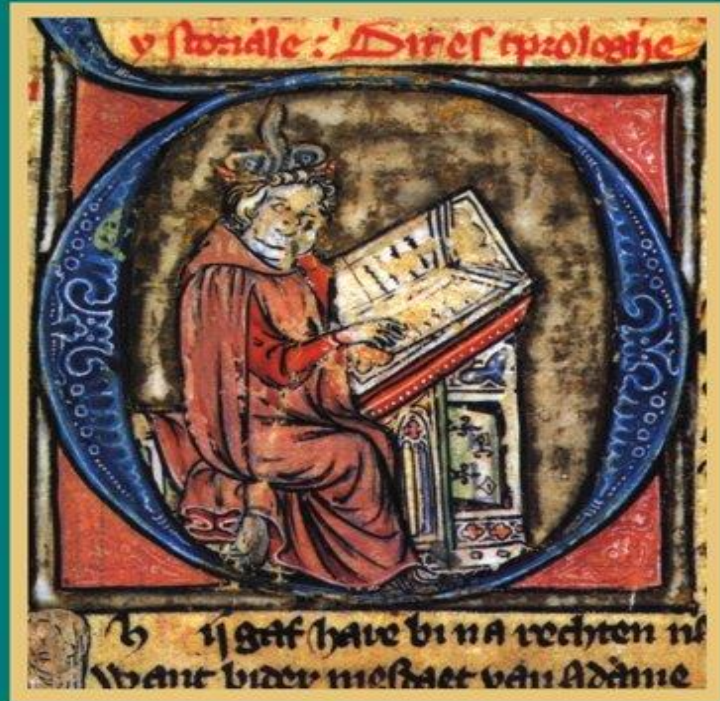 y storiale : Dit es tprologhe
h ijgaf hare bi na rechten
want bider mesdaet van Adame